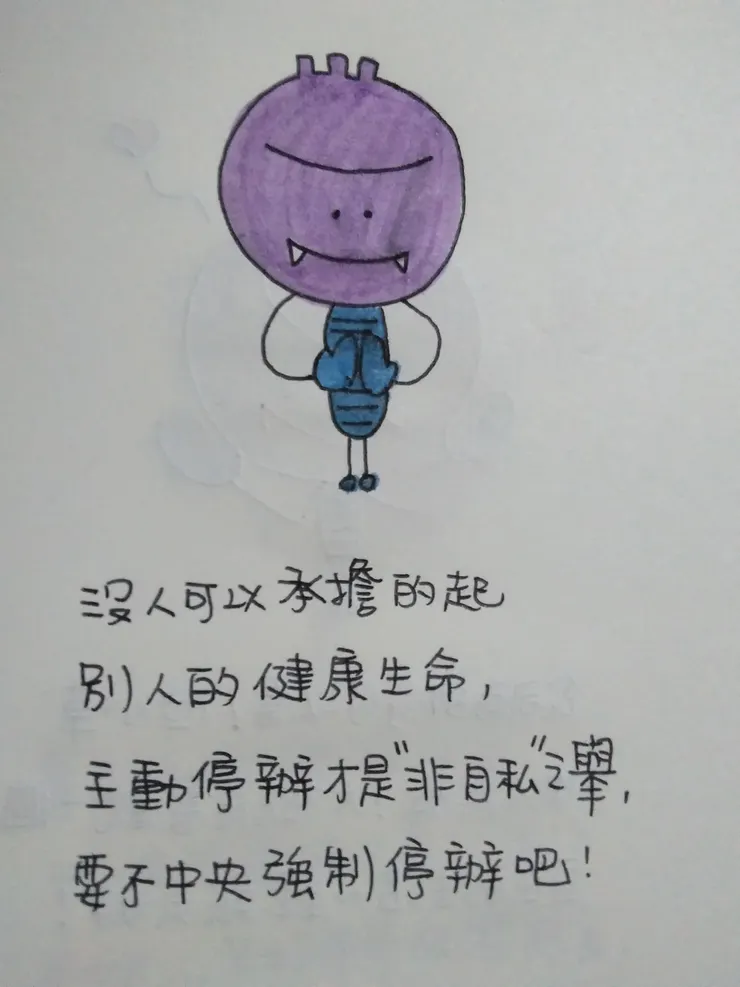 沒人可以承擔的起
別人的健康生命，
主動停辦才是"非自私"之舉，
要不中央強制停辦吧！